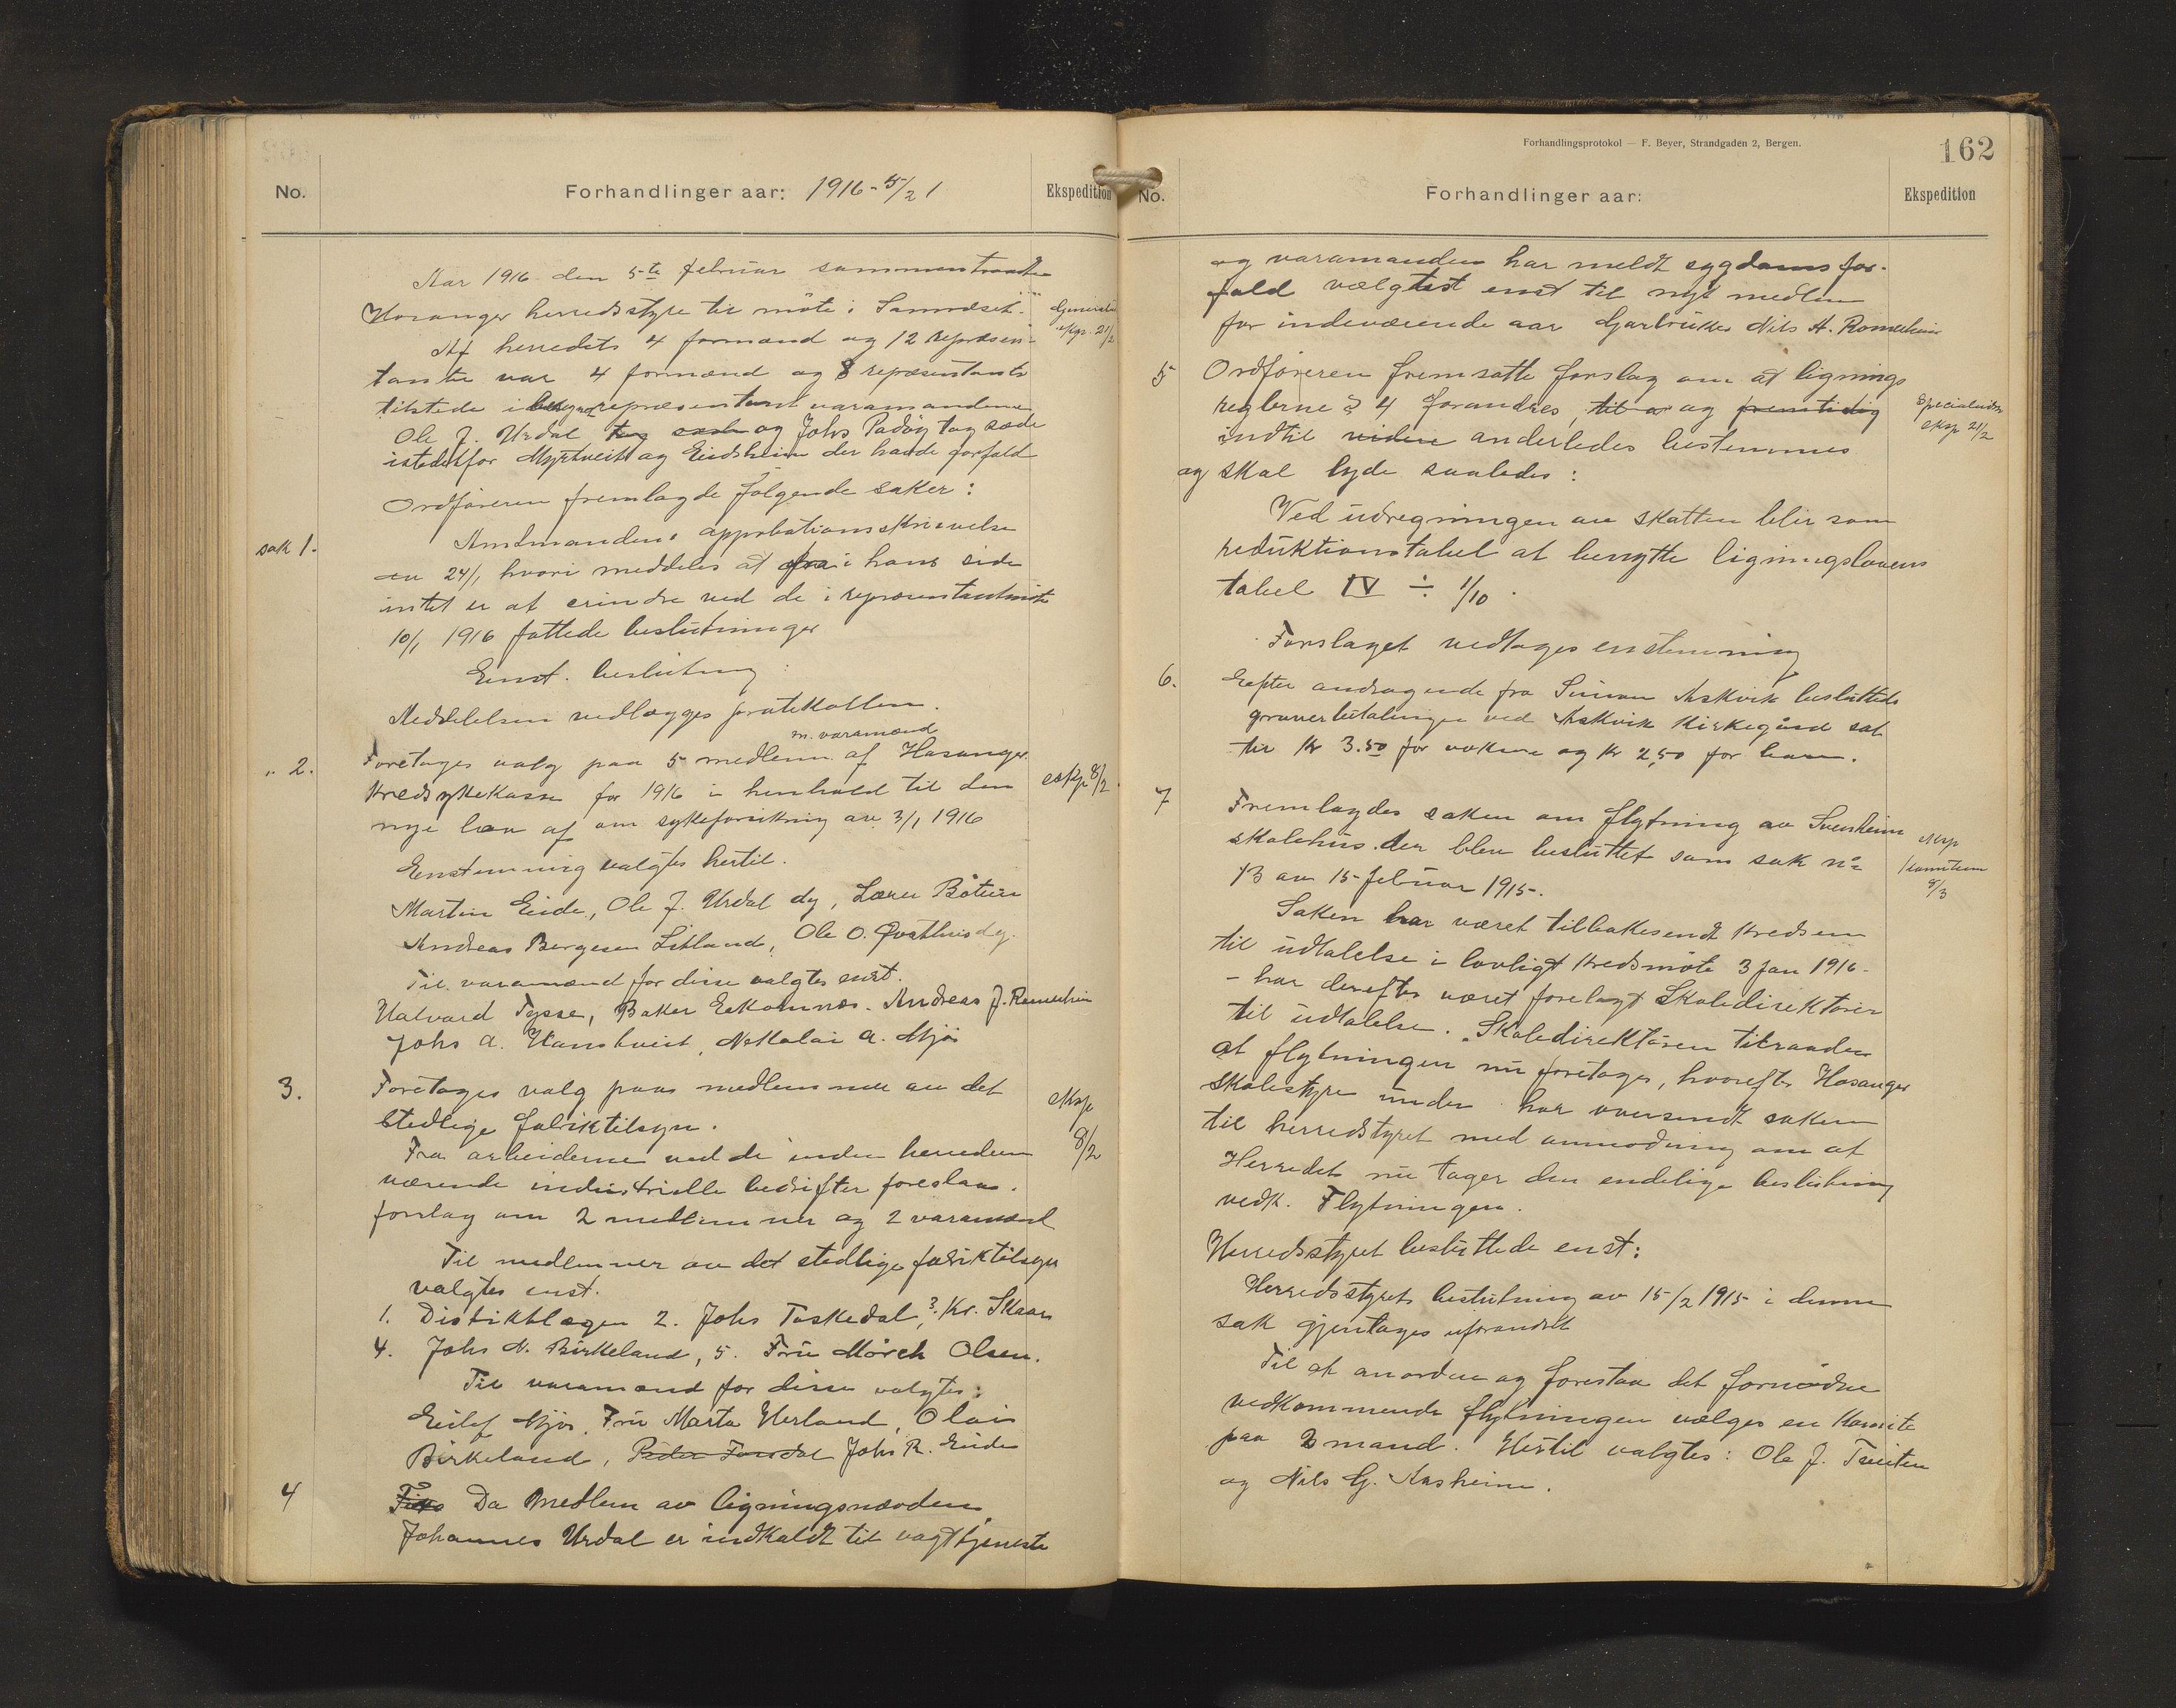 No.
Forhandlinger aar: 1916-5/2 1
Ekspedition
Aar 1916 den 5te februar sammentraadte
Hosanger herredsstyre til möte i Sanndset.
Af herredets 4 formænd og 12 repræsen-
tanter var 4 formænd og 8 repæsentanter
tilstede varamændene
Ole J. Urdal og Johs Padöy tog sæde
istedetfor Myrtveit og Eidsheim der havde forfald
Ordföreren fremlagde fölgende saker:
sak 1.
Amtmandens approbationsskrivelse
av 24/1 hvori meddeles at fra hans side
intet er at erindre ved de i repræsentantmöte
10/1 1916 fattede beslutninger
Enst. beslutning:
Meddelelsen vedlægges protokollen.
" 2.
m. varamænd
Foretages valg paa 5 medlem. af Hosanger
kredsykekasse for 1916 i henhold til den
eksp 8/2.
nye lov af om sykeforsikring av 3/1 1916
Enstemmig valgtes hertil.
Martin Eide, Ole J. Urdal dy, Lærer Böturn
Andreas Bergesen Litland, Ole O. Qvsthus dy.
Til varamænd for disse valgtes enst.
Halvard Tysse, Baker Eekomnæs. Andreas J. Romarheim
Johs A. Hamskveit, Nikolai A. Mjös
3.
Foretages valg paa medlemmer av det
eksp
stedlige fabriktilsyn.
8/2
Fra arbeiderne ved de inden herredem
værende industrielle bedrifter foreslaas.
forslag om 2 medlemmer og 2 varamænd
Til medlemmer av det stedlige fabriktilsyn
valgtes enst.
1. Distriktlægen 2. Johs Taskedal, 3. Kr. Skaar
4. Johs N. Birkeland, 5. Frü Mörch Olsen.
Til varamænd for disse valgtes:
Eilef Mjös, Frü Marta Herland, Olai
Birkeland, Peder Fondal Johs R. Eide
4
Da Medlem av ligningsnævnden
Johannes Urdal er indkaldt til vagttjeneste
Forhandlingsprotokol — F. Beyer, Strandgaden 2, Bergen.
162
No.
Forhandlinger aar:
Ekspedition
og varamanden har meldt sygdomsfor-
fald vælgtest enst til nyt medlem
for indeværende aar Garbruker Nils A. Romarheim
5
Ordföreren fremsatte forslag om at lignings
reglerne § 4 forandres, til a og fremtidig
indtil videre anderledes bestemmes
og skal lyde saaledes:
Ved udregningen av skatten blir som
reduktionstabel at benytte ligningslovens
tabel IV ÷ 1/10.
Forslaget vedtages enstemmig
6.
Eefter andragende fra Simon Askvik besluttedes
graverbetalingen ved Askvik Kirkegård sat
til Kr 3.50 for voksne og Kr 2,50 for barn.
7
Fremlagdes saken om flytning av Svenheim
skolehus. der blev besluttet som sak no
13 av 15 februar 1915.
Saken har været tilbakesendt kredsen
til udtalelse i lovligt kredsmöte 3 jan 1916.
- har derefter været forelagt Skoledirektören
til udtalelse. Skoledirektören tilraader
at flytningen nu foretages, hvorefter Hosanger
skolestyre under har oversendt saken
til herredstyret med anmodning om at
Herredet nu tager den endelige beslutning
vedk. Flytningen.
Herredsstyret besluttede enst:
Herredsstyrets beslutning av 15/2 1915 i denne
sak gjentages uforandret
Til at anordne og forestaa det fornödne
vedkommende flytningen vælges en komite
paa 2 mand. Hertil valgtes: Ole J. Tveiten
og Nils G. Aasheim.